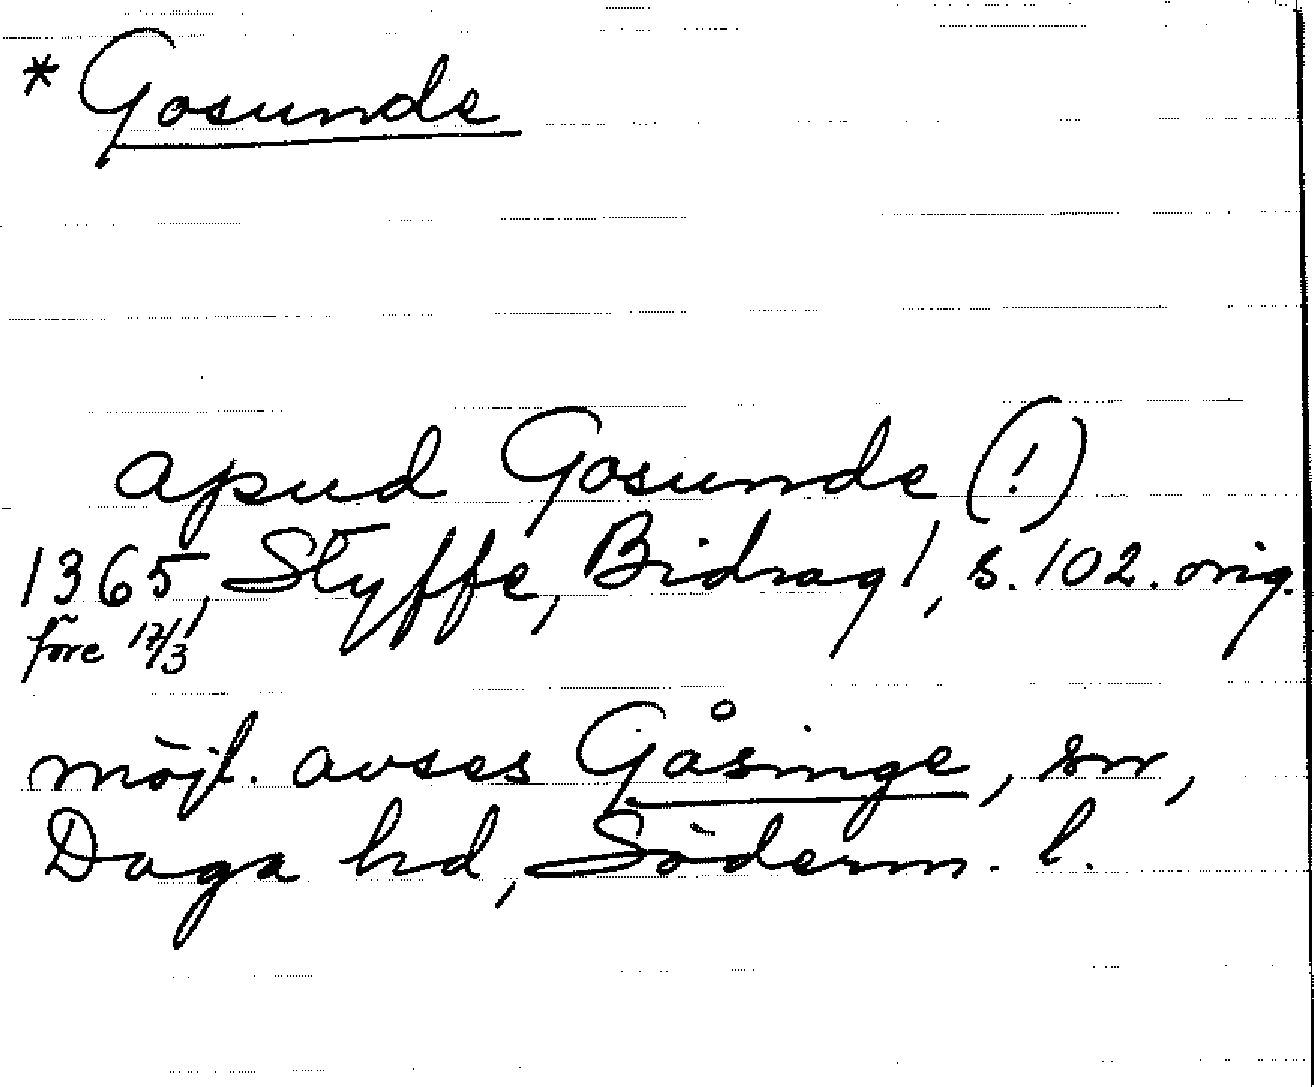 * Gosunde
apud Gosunde (!)
1365, Styffe, Bidrag 1, s. 102. orig.
före 17/3
möjl. avses Gåsinge, sn,
Daga hd, Söderm. l.